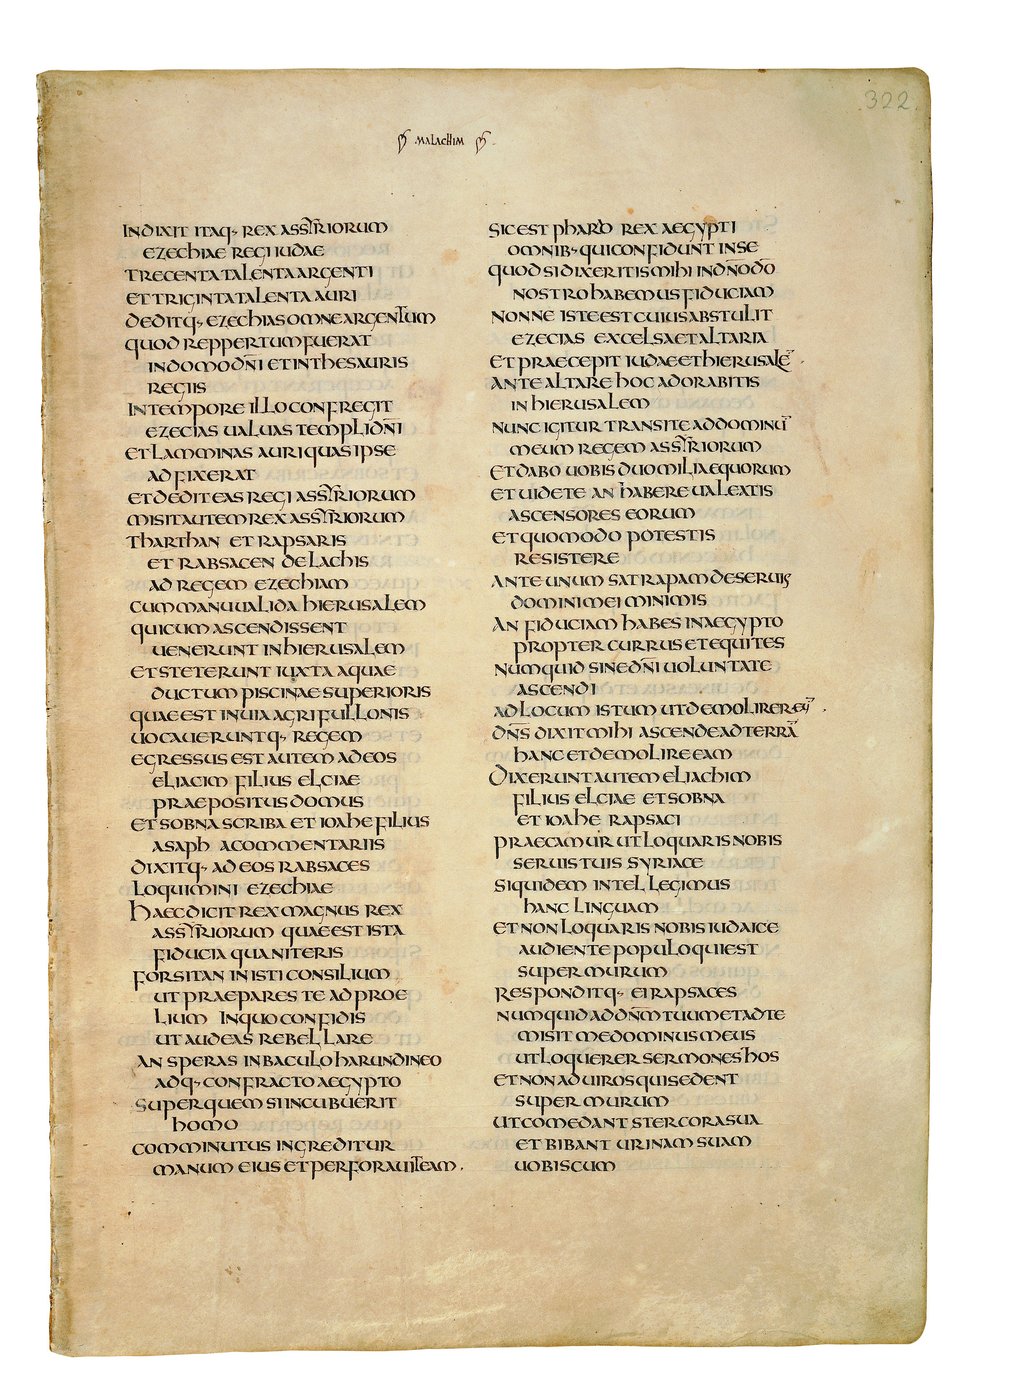 322.
MALACHIM
INDIXIT ITAQ· REX ASSYRIORUM
EZECHIAE REGI IUDAE
TRECENTA TALENTA ARGENTI
ET TRIGINTA TALENTA AURI
DEDITQ· EZECHIAS OMNE ARGENTUM
QUOD REPPERTUM FUERAT
IN DOMO DN̄I ET IN THESAURIS
REGIIS
IN TEMPORE ILLO CONFREGIT
EZECIAS UALUAS TEMPLI DN̄I
ET LAMMINAS AURI QUAS IPSE
ADFIXERAT
ET DEDIT EAS REGI ASSYRIORUM
MISIT AUTEM REX ASSYRIORUM
THARTHAN ET RAPSARIS
ET RABSACEN DE LACHIS
AD REGEM EZECHIAM
CUM MANU UALIDA HIERUSALEM
QUI CUM ASCENDISSENT
UENERUNT IN HIERUSALEM
ET STETERUNT IUXTA AQUAE
DUCTUM PISCINAE SUPERIORIS
QUAE EST IN UIA AGRI FULLONIS
UOCAUERUNTQ· REGEM
EGRESSUS EST AUTEM AD EOS
ELIACIM FILIUS ELCIAE
PRAEPOSITUS DOMUS
ET SOBNA SCRIBA ET IOAHE FILIUS
ASAPH A COMMENTARIIS
DIXITQ· AD EOS RABSACES
LOQUIMINI EZECHIAE
HAEC DICIT REX MAGNUS REX
ASSYRIORUM QUAE EST ISTA
FIDUCIA QUA NITERIS
FORSITAN INISTI CONSILIUM
UT PRAEPARES TE AD PROE
LIUM IN QUO CONFIDIS
UT AUDEAS REBELLARE
AN SPERAS IN BACULO HARUNDINEO
ADQ· CONFRACTO AEGYPTO
SUPER QUEM SI INCUBUERIT
HOMO
COMMINUTUS INGREDITUR
MANUM EIUS ET PERFORAUIT EAM·
SIC EST PHARO REX AEGYPTI
OMNIB· QUI CONFIDUNT IN SE
QUOD SI DIXERITIS MIHI IN DN̄O DŌ
NOSTRO HABEMUS FIDUCIAM
NONNE ISTE EST CUIUS ABSTULIT
EZECIAS EXCELSA ET ALTARIA
ET PRAECEPIT IUDAE ET HIERUSALĒ·
ANTE ALTARE HOC ADORABITIS
IN HIERUSALEM
NUNC IGITUR TRANSITE AD DOMINŪ
MEUM REGEM ASSYRIORUM
ET DABO UOBIS DUO MILIA EQUORUM
ET UIDETE AN HABERE UALEATIS
ASCENSORES EORUM
ET QUOMODO POTESTIS
RESISTERE
ANTE UNUM SATRAPAM DE SERUIS
DOMINI MEI MINIMIS
AN FIDUCIAM HABES IN AEGYPTO
PROPTER CURRUS ET EQUITES
NUMQUID SINE DN̄I UOLUNTATE
ASCENDI
AD LOCUM ISTUM UT DEMOLIRER EŪ·
DN̄S DIXIT MIHI ASCENDE AD TERRĀ
HANC ET DEMOLIRE EAM
DIXERUNT AUTEM ELIACHIM
FILIUS ELCIAE ET SOBNA
ET IOAHE RAPSACI
PRAECAMUR UT LOQUARIS NOBIS
SERUIS TUIS SYRIACE
SIQUIDEM INTELLEGIMUS
HANC LINGUAM
ET NON LOQUARIS NOBIS IUDAICE
AUDIENTE POPULO QUI EST
SUPER MURUM
RESPONDITQ· EI RAPSACES
NUMQUID AD DN̄M TUUM ET AD TE
MISIT ME DOMINUS MEUS
UT LOQUERER SERMONES HOS
ET NON AD UIROS QUI SEDENT
SUPER MURUM
UT COMEDANT STERCORA SUA
ET BIBANT URINAM SUAM
UOBISCUM